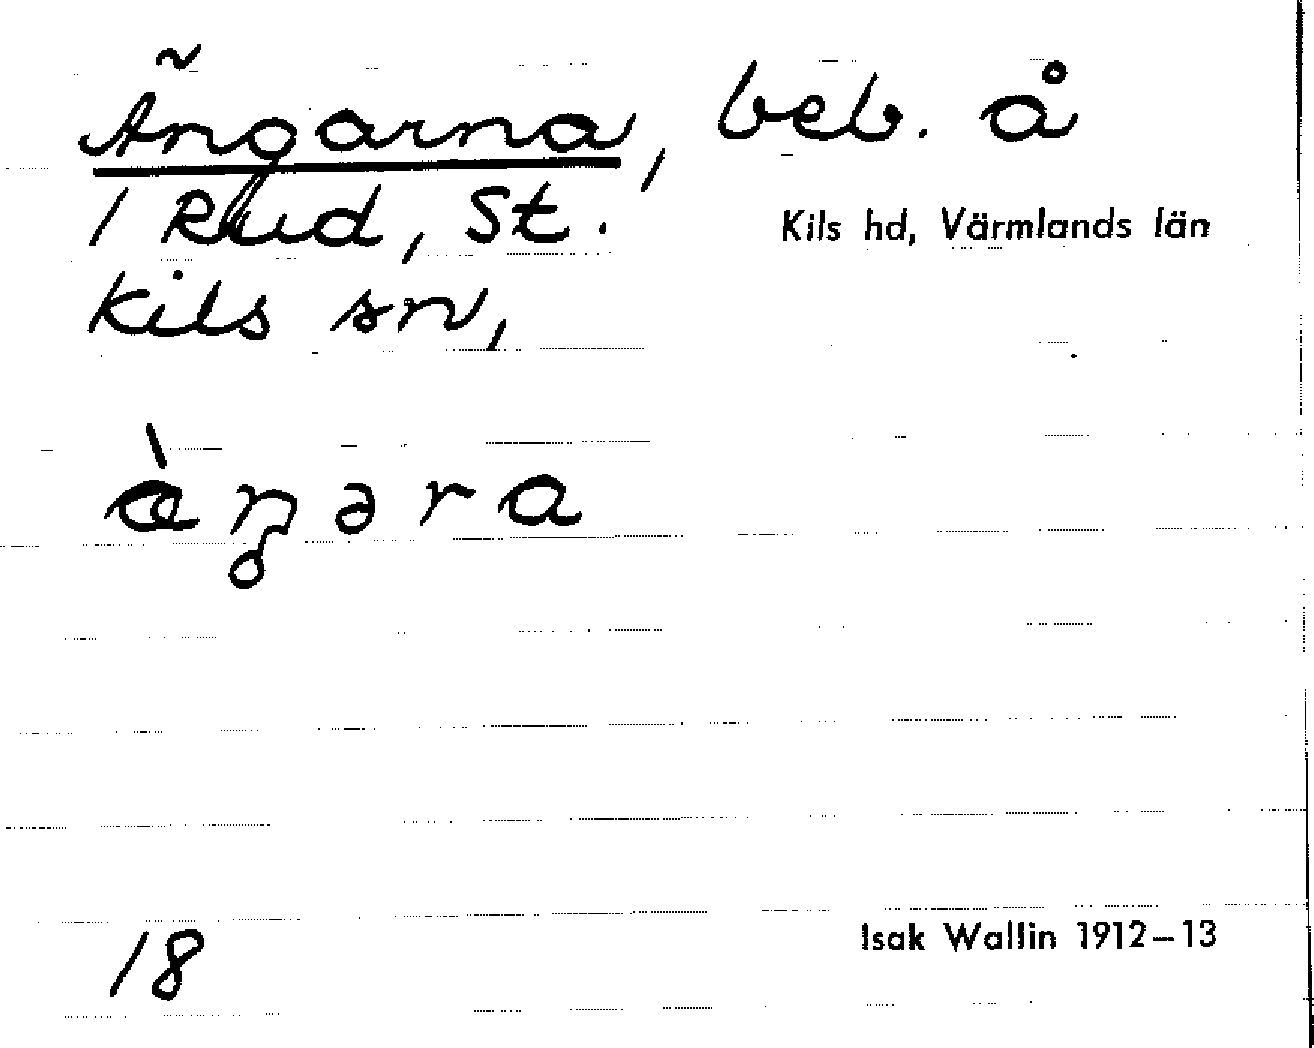 Ängarna, beb. å
1 Rud, St. Kils hd, Värmlands län
Kils sn,
æ̀ŋəra
18 Isak Wallin 1912–13